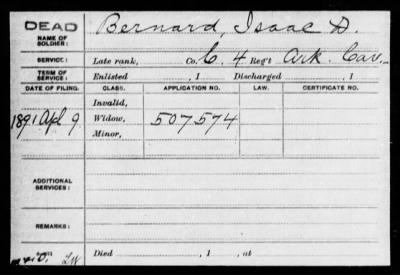 DEAD
NAME OF SOLDIER: Bernard, Isaac D.
SERVICE: Late rank, Co. C. 4 Reg't Ark. Cav.
TERM OF SERVICE: Enlisted , 1 Discharged , 1
DATE OF FILING. CLASS. APPLICATION NO. LAW. CERTIFICATE NO.
Invalid,
1891 Apl 9 Widow, 507574
Minor,
ADDITIONAL SERVICES:
REMARKS:
Died , 1 , at